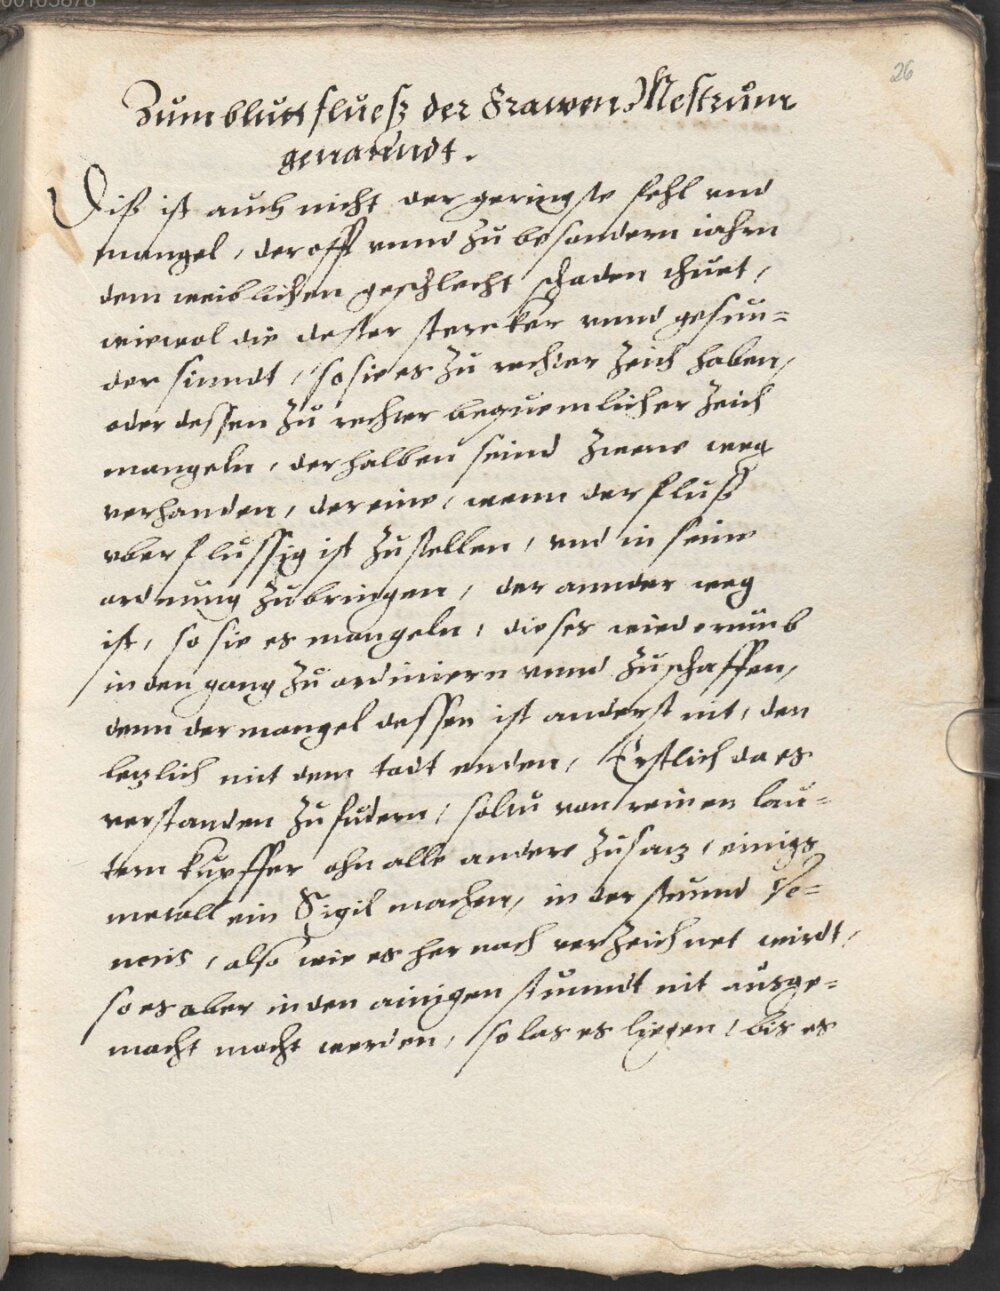 00105878
26
Zum blutt flueß der Frawen Mestrum
genanndt.
Diß ist auch nicht der geringste fehl vnd
mangel, der offt vnnd zu besondern iahrn
dem weiblichen geschlecht schaden thuet,
wiewol die dester stercker vnnd gesun=
der sinndt, so sie es zu rechter Zeith haben,
oder dessen zu rechter bequemlicher Zeith
mangeln, derhalben seind Zween weg
verhanden, der eine, wenn der fluß
vberflussig ist zu stellen, vnd in seine
ordnung zu bringen, der annder weg
ist, so sie es mangeln, dieses wiederumb
in den gang zu ordiniern vnnd zu schaffen,
denn der mangel dessen ist anderst nit, den
letzlich mit dem todt enden, Erstlich da es
verstanden zu fudern, soltu von reinen lau=
tern kupffer ohn alle andere zusatz, einigs
metall ein Sigil machen, in der stunnd Ve=
neris, also wie es hernach verzeichnet wirdt,
so es aber in den ainigen stunndt nit ausge=
macht macht werden, so las es liegen, bis es